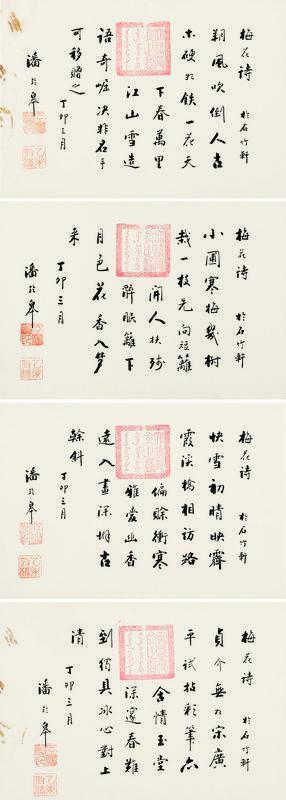 梅花詩
於石竹軒
朔風吹倒人古
木硬如鐵一花天
下春萬里
江山雪造
語奇崛決非名手
可移贈之
丁卯三月
潘齡皋
梅花詩
於石竹軒
小圃寒梅幾樹
栽一枝先向短籬
開人扶殘
醉眠籬下
月色花香入夢
來
丁卯三月
潘齡皋
梅花詩
於石竹軒
快雪初晴映霽
霞溪橋相訪路
偏賒衝寒
雅愛幽香
遠入畫深憐古
榦斜
丁卯三月
潘齡皋
梅花詩
於石竹軒
貞介無如宋廣
平試拈彩筆亦
含情玉堂
深邃春難
到獨具冰心對上
清
丁卯三月
潘齡皋